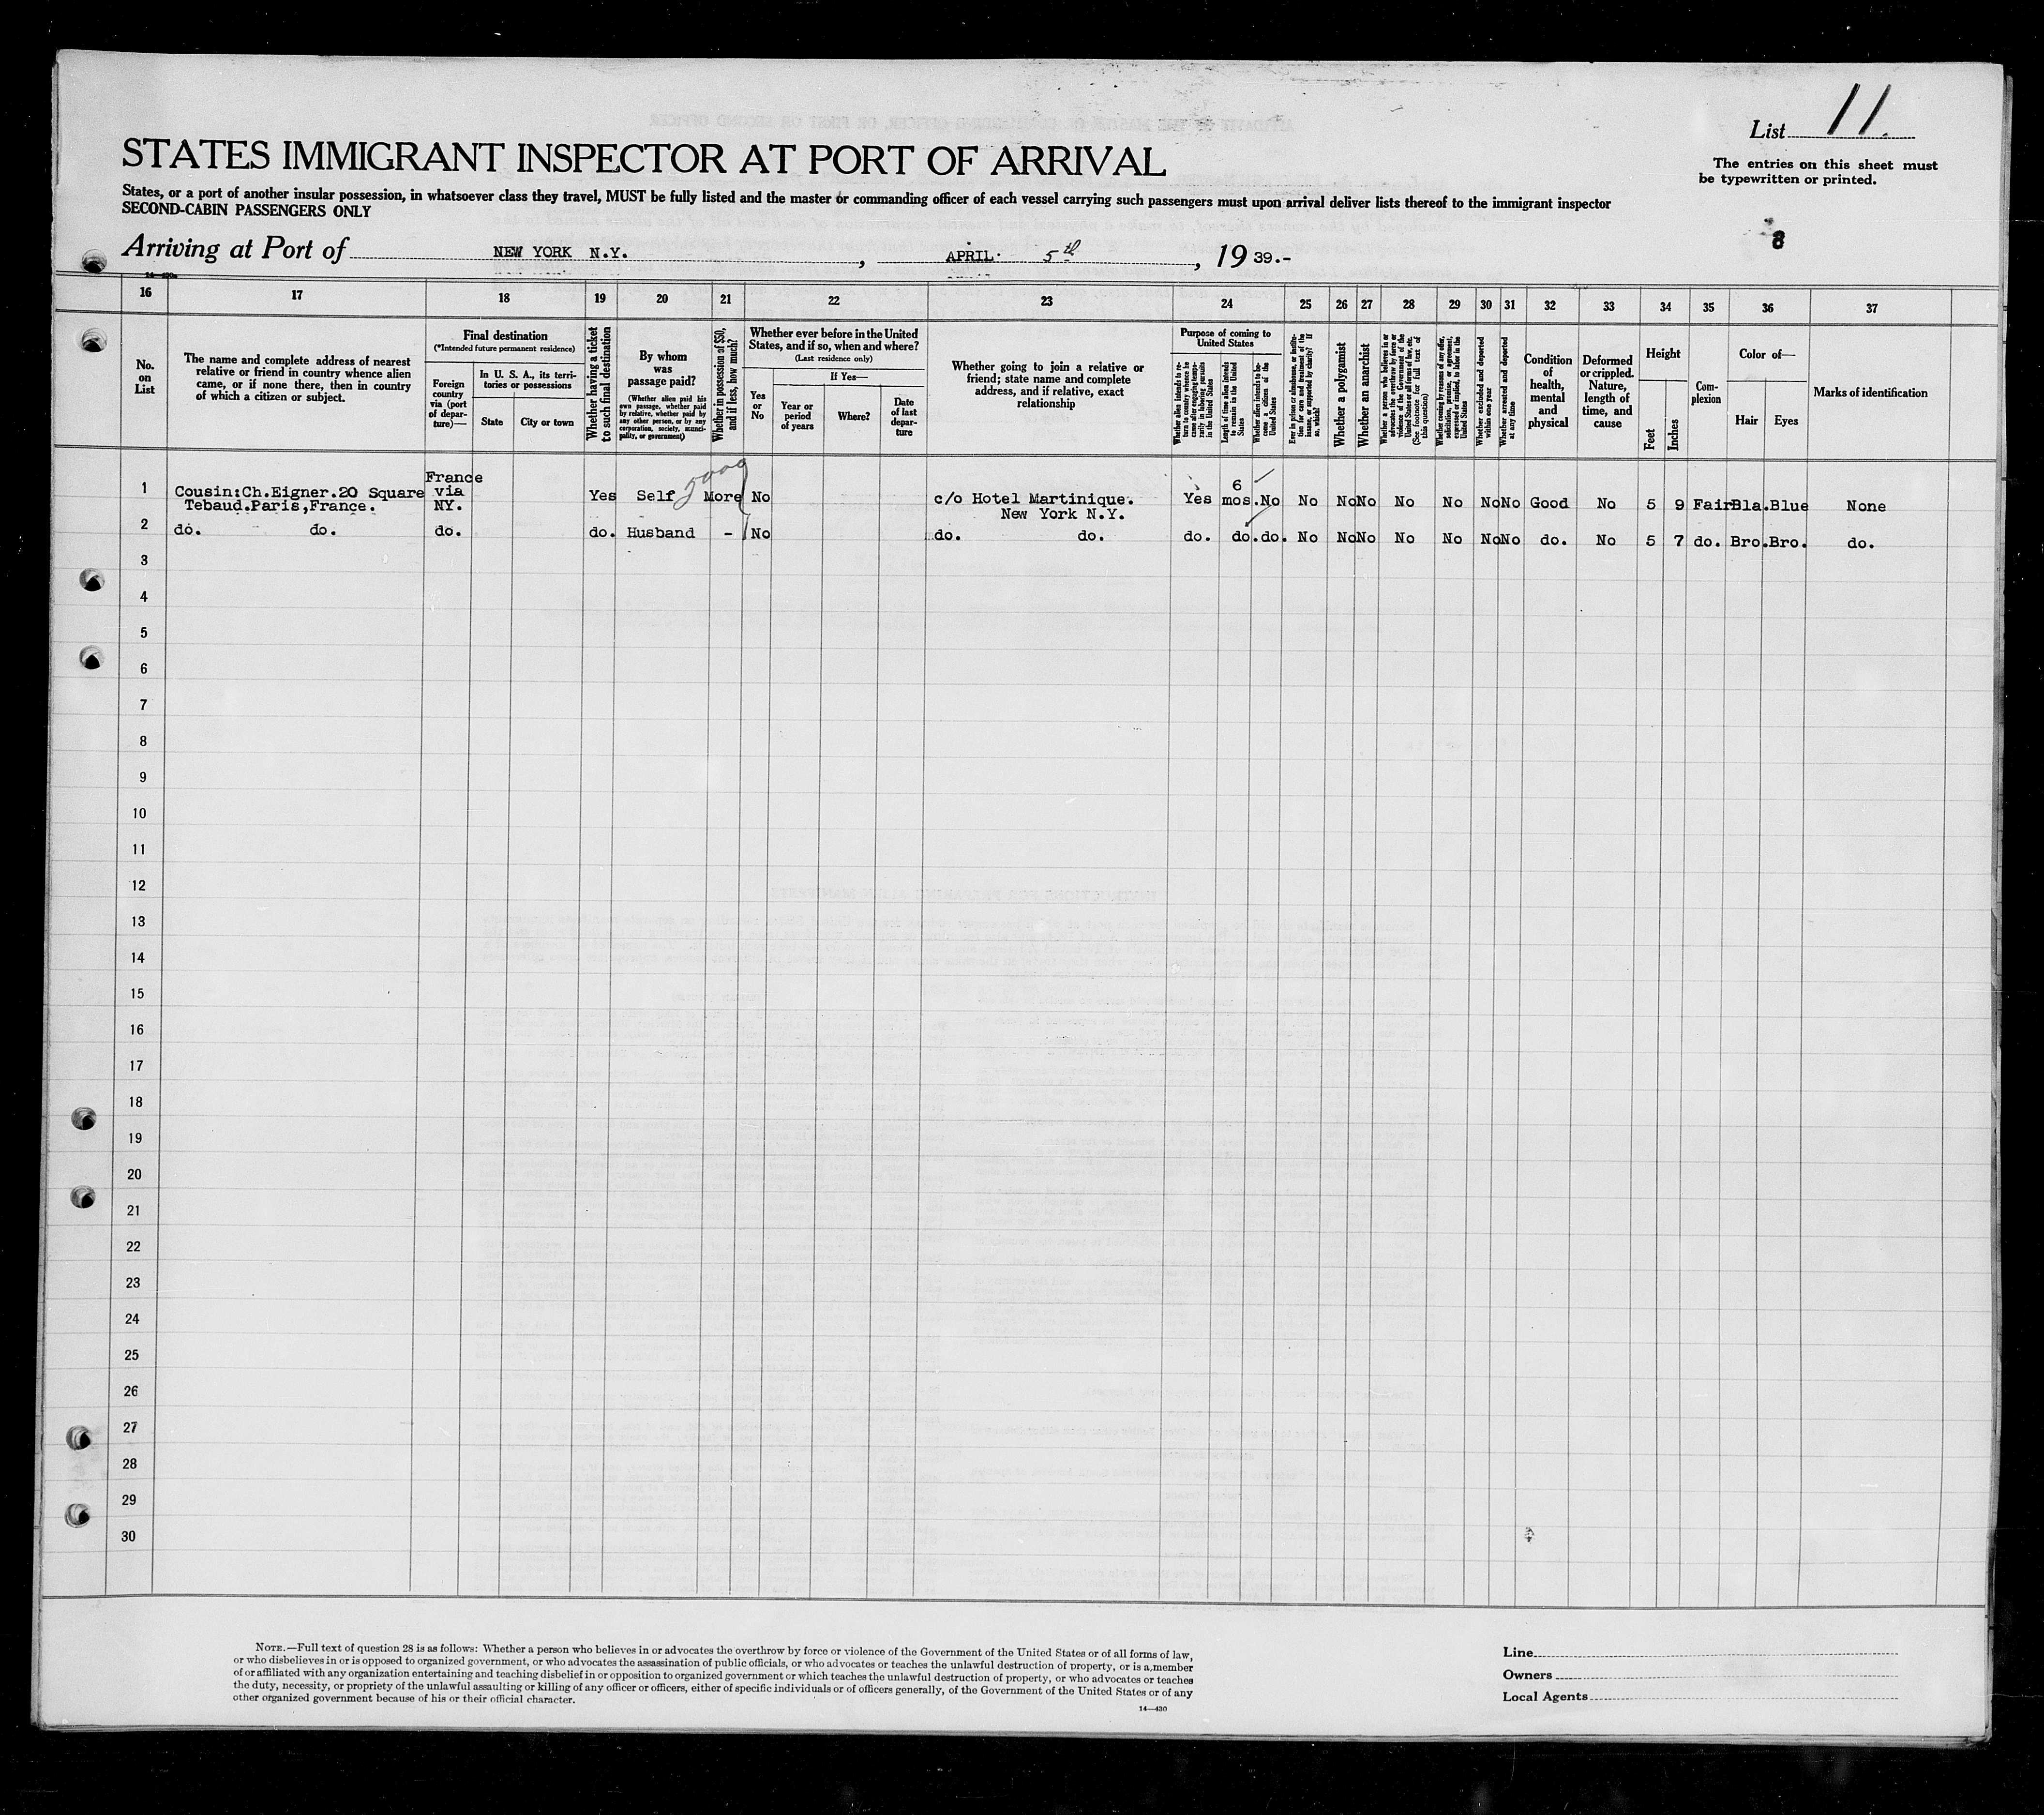 List 11.
The entries on this sheet must
be typewritten or printed.
STATES IMMIGRANT INSPECTOR AT PORT OF ARRIVAL
States, or a port of another insular possession, in whatsoever class they travel, MUST be fully listed and the master or commanding officer of each vessel carrying such passengers must upon arrival deliver lists thereof to the immigrant inspector
SECOND-CABIN PASSENGERS ONLY
8
Arriving at Port of NEW YORK N.Y. , APRIL 5th , 19 39.-
16 17 18 19 20 21 22 23 24 25 26 27 28 29 30 31 32 33 34 35 36 37
No. on List
The name and complete address of nearest
relative or friend in country whence alien
came, or if none there, then in country
of which a citizen or subject.
Final destination
(*Intended future permanent residence)
Foreign country via (port of depar-ture)—
In U. S. A., its terri-tories or possessions
State
City or town
Whether having a ticket to such final destination
By whom was passage paid?
(Whether alien paid his own passage, whether paid by relative, whether paid by any other person, or by any corporation, society, munici-pality, or government)
Whether in possession of $50, and if less, how much?
Whether ever before in the United
States, and if so, when and where?
(Last residence only)
Yes or No
If Yes—
Year or period of years
Where?
Date of last depar-ture
Whether going to join a relative or
friend; state name and complete
address, and if relative, exact
relationship
Purpose of coming to United States
Whether alien intends to re-turn to country whence he came after engaging tempo-rarily in laboring pursuits in the United States
Length of time alien intends to remain in the United States
Whether alien intends to be-come a citizen of the United States
Ever in prison or almshouse, or institu-tion for care and treatment of the insane, or supported by charity? If so, which?
Whether a polygamist
Whether an anarchist
Whether a person who believes in or advocates the overthrow by force or violence of the Government of the United States or all forms of law, etc. (See footnote for full text of this question)
Whether coming by reasons of any offer, solicitation, promise, or agreement, expressed or implied, to labor in the United States
Whether excluded and deported within one year
Whether arrested and deported at any time
Condition of health, mental and physical
Deformed or crippled. Nature, length of time, and cause
Height
Feet
Inches
Com-plexion
Color of—
Hair
Eyes
Marks of identification
1 Cousin:Ch.Eigner.20 Square Tebaud.Paris,France. France via NY. Yes Self 5000 More No c/o Hotel Martinique. New York N.Y. Yes 6 mos. No No No No No No No No Good No 5 9 Fair Bla. Blue None
2 do. do. do. do. Husband - No do. do. do. do. do. No No No No No No No do. No 5 7 do. Bro. Bro. do.
3
4
5
6
7
8
9
10
11
12
13
14
15
16
17
18
19
20
21
22
23
24
25
26
27
28
29
30
NOTE.—Full text of question 28 is as follows: Whether a person who believes in or advocates the overthrow by force or violence of the Government of the United States or of all forms of law,
or who disbelieves in or is opposed to organized government, or who advocates the assassination of public officials, or who advocates or teaches the unlawful destruction of property, or is a member
of or affiliated with any organization entertaining and teaching disbelief in or opposition to organized government or which teaches the unlawful destruction of property, or who advocates or teaches
the duty, necessity, or propriety of the unlawful assaulting or killing of any officer or officers, either of specific individuals or of officers generally, of the Government of the United States or of any
other organized government because of his or their official character.
14—430
Line
Owners
Local Agents